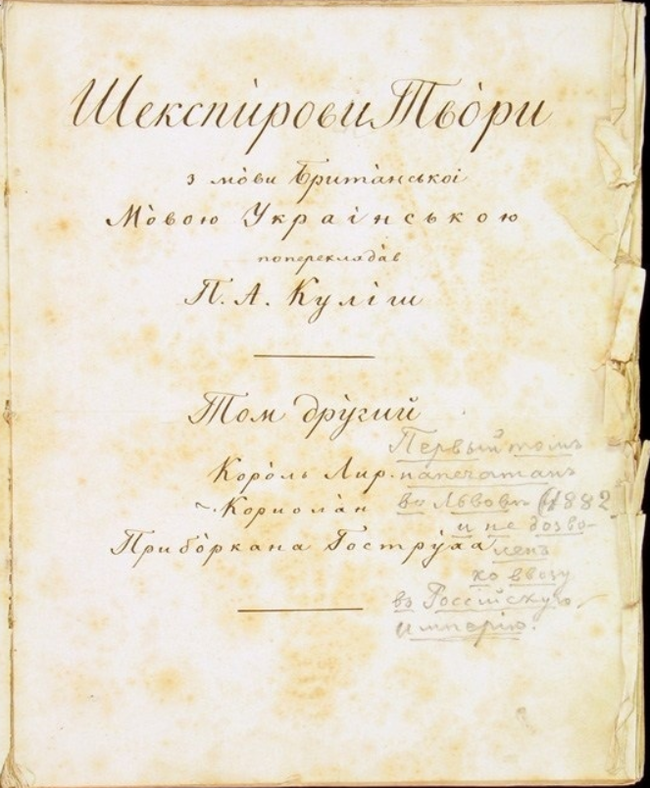 Шекспѝрови Тво̀ри
з мо̀ви Брита̀нськоі
Мо̀вою Украінською
поперекляда̀в
П. А. Куліш
Том дру̀гий
Коро̀ль Лир.
Кориола̀н
Прибо̀ркана Гостру̀ха
Первый томъ
напечатанъ
въ Львовѣ (1882
и не дозво-
ленъ
ко ввозу
въ Россійскую
имперію.